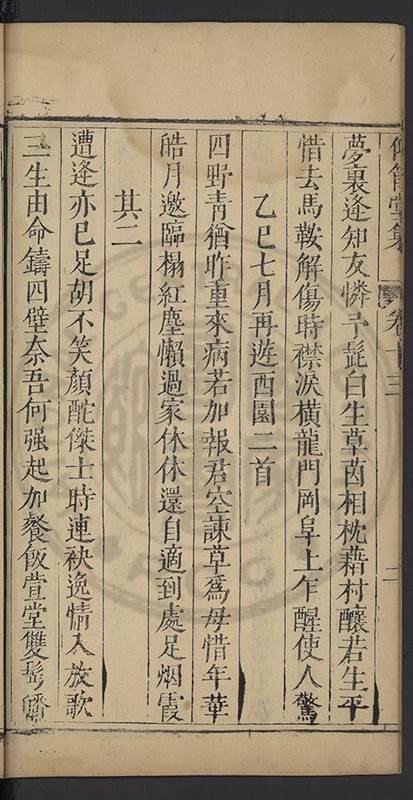 堂集 卷十三
夢裏逢知友憐予髭白生草茵相枕藉村釀若生平
惜去馬鞍解傷時襟淚橫龍門岡阜上乍醒使人驚
乙巳七月再遊西園二首
四野青猶昨重來病若加報君空諫草爲母惜年華
皓月邀臨榻紅塵懶過家休休還自適到處足烟霞
其二
遭逢亦已足胡不笑顏酡傑士時連袂逸情入放歌
三生由命鑄四壁奈吾何强起加餐飯萱堂雙髩皤